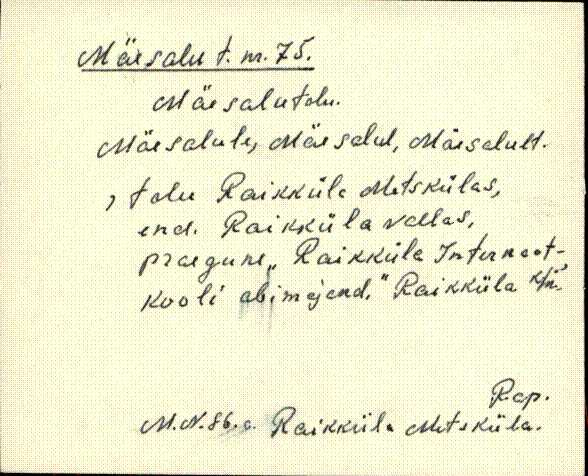 Mäesalu t. nr. 75.
Mäesalu talu.
Mäesalule, Mäesalul, Mäesalult.
, talu Raikküla Metskülas,
end. Raikküla vallas,
praegune „Raikküla Internaat-
kooli abimajand." Raikküla k/n.
Rap.
M.N. 86. a. Raikküla Metsküla.